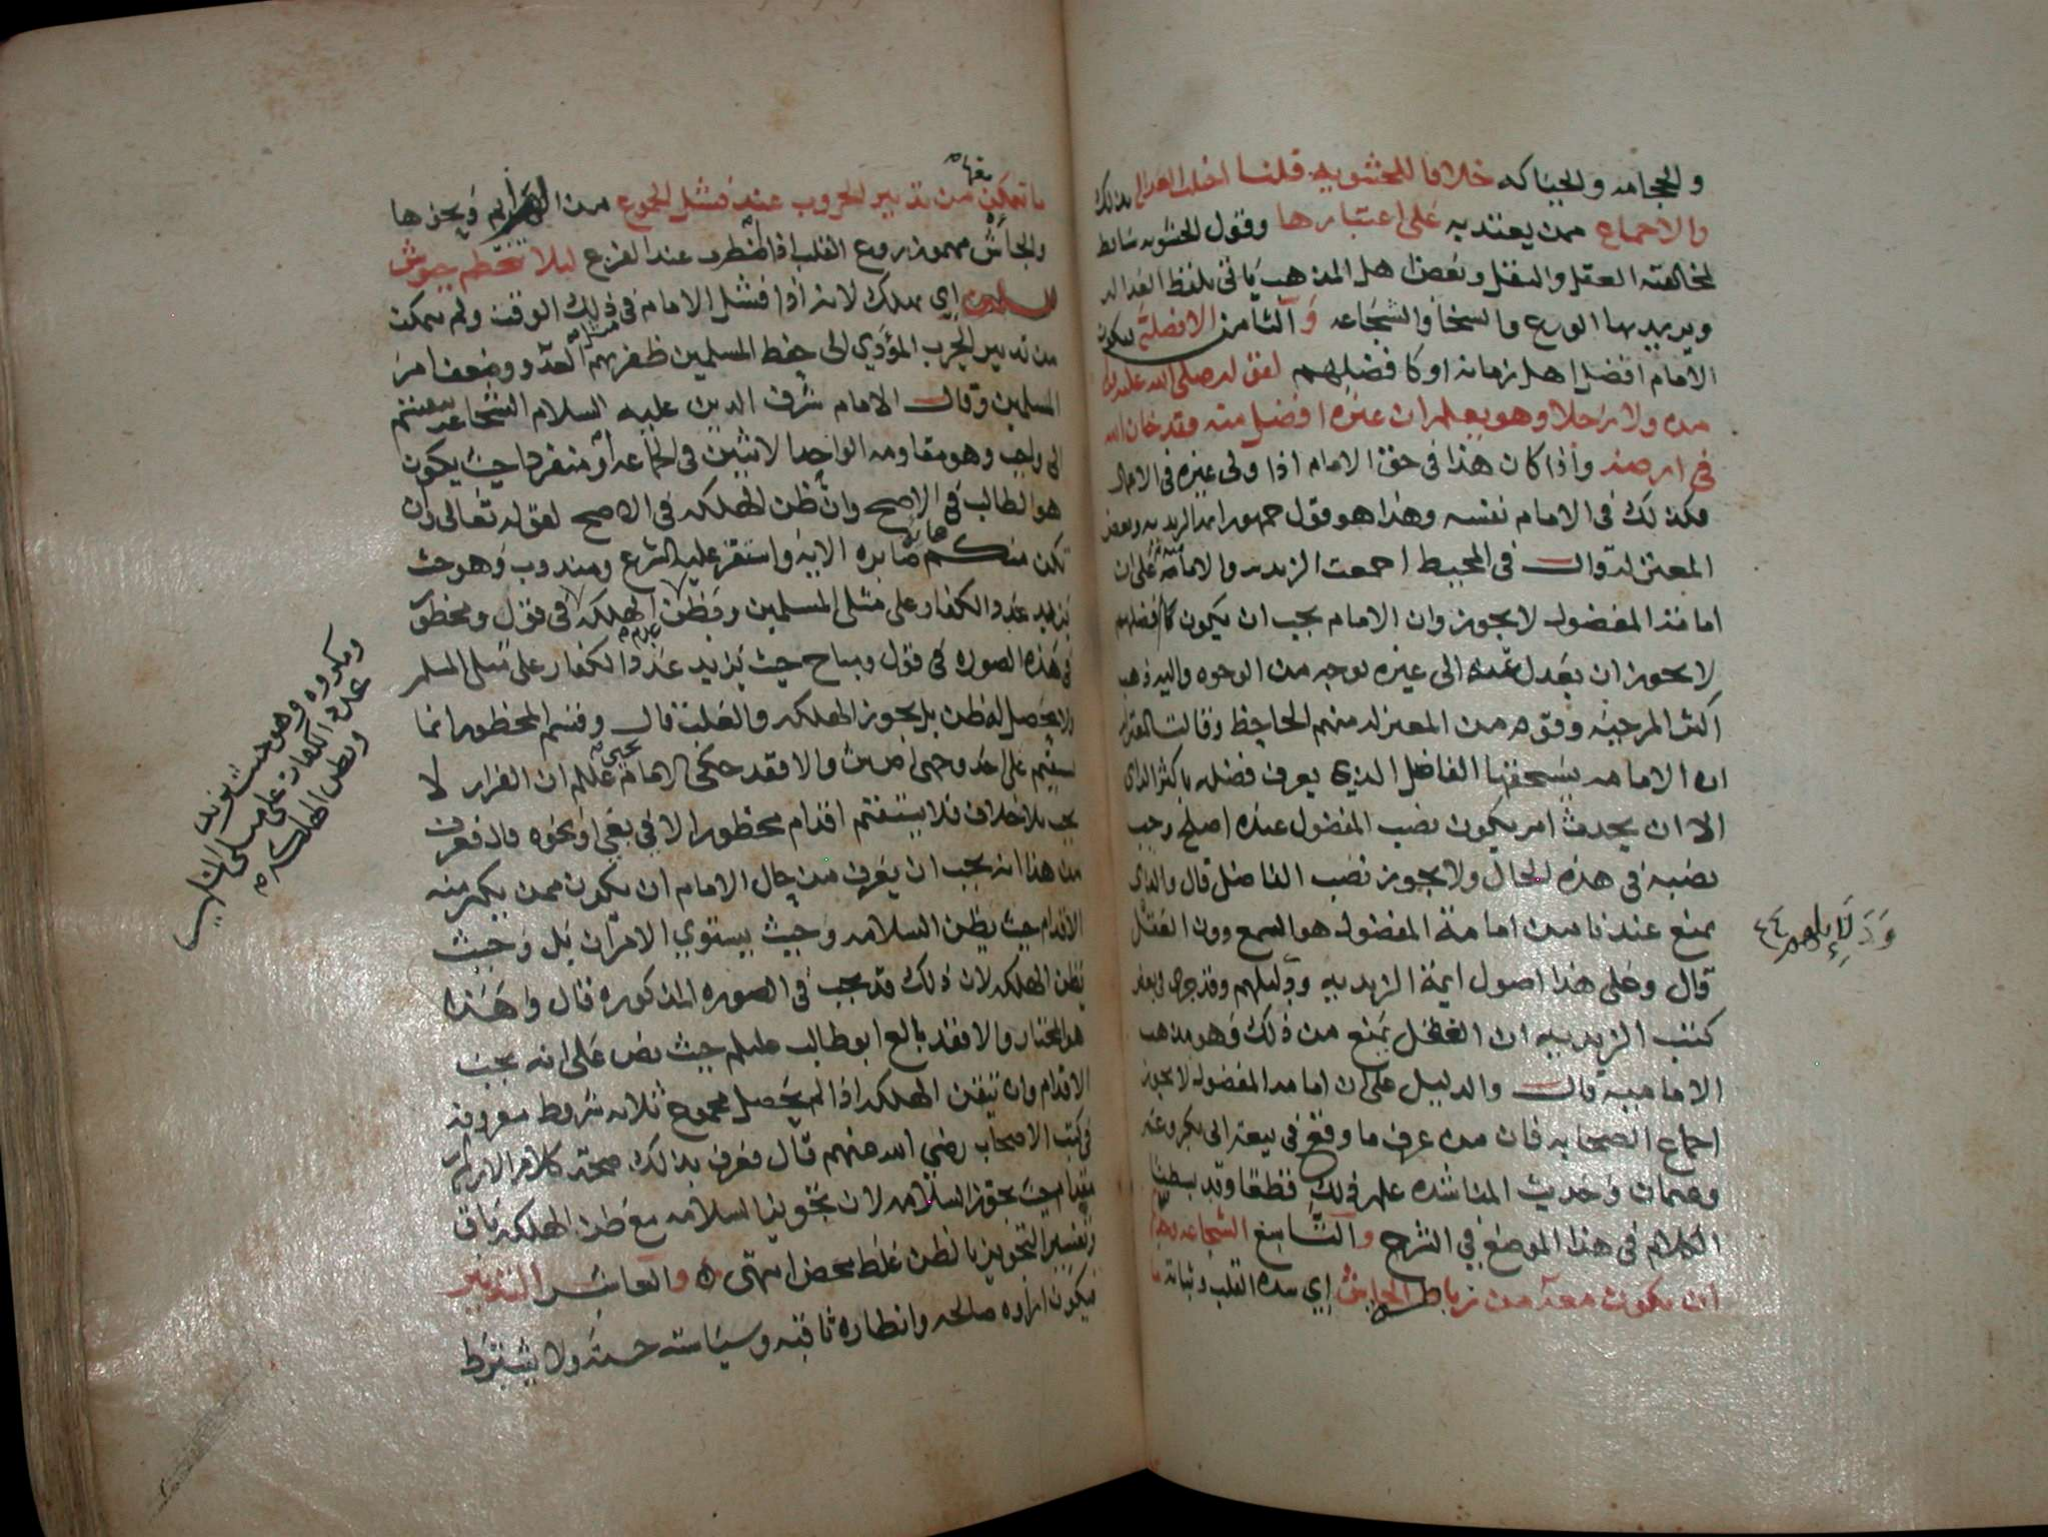 والحجامه والحياكه خلافا للحشويه قلنا
والاجماع ممن يعتد به على اعتبارها وقول الحشويه ساقط
لمخالفته العقل والنقل وبعض اهل المذهب ياتي بلفظ العداله
ويريد بها الورع والسخا والشجاعه و الثامن الافضليه بكون
الامام افضل اهل زمانه او كافضلهم لقوله صلى الله عليه
من ولا رجلا وهو يعلم ان غيره افضل منه فقد خان الله
في ارضه واذا كان هذا في حق الامام اذا ولى غيره في الاعمال
فكذلك في الامام نفسه وهذا هو قول جمهور ايمه الزيديه وبعض
المعتزله قال في المحيط اجمعت الزيديه والاماميه على ان
امامة المفضول لا يجوز وان الامام يجب ان يكون كافضلهم
لا يجوز ان يعدل عنه الى غيره لوجه من الوجوه واليه ذهب
اكثر المرجيه وقوم من المعتزله منهم الجاحظ وقالت المعتزله
ان الامامه يستحقها الفاضل الذي يعرف فضله باكثر الراي
الا ان يحدث امر يكون نصب المفضول عنده اصلح وجب
نصبه في هذه الحال ولا يجوز نصب الفاضل قال والذي
يمنع عندنا من امامة المفضول هو السمع دون العقل
قال وعلى هذا اصول ايمة الزيديه ودليلهم وقد جرى في بعض
كتب الزيديه ان العقل يمنع من ذلك وهو مذهب
الاماميه قال والدليل على ان امامه المفضول لا يجوز
اجماع الصحابه فان من عرف ما وقع في بيعة ابي بكر وعمر
وعثمان وحديث المناشده علم ذلك قطعا وقد بسطنا
الكلام في هذا الموضع في الشرح والتاسع الشجاعه وهي
ان يكون معه من رباط الجاش اي شده القلب وثباته ما
يتمكن من تدبير الحروب عند فشل الجموع من ويحزها
والجاش مهموز روع القلب اذا اضطرب عند الفزع ليلا تتحطم جيوش
المسلمين اي يهلك لانه اذا فشل الامام في ذلك الوقت ولم يمكن
من تدبير الحرب المؤدي الى حفظ المسلمين ظفر بهم العدو وضعف امر
المسلمين وقال الامام شرف الدين عليه السلام الشجاعه تنقسم
الى واجب وهو مقاومه الواحد الاثنين في الجماعه او منفردا حيث يكون
هو الطالب في الاصح وان ظن الهلكه في الاصح لقوله تعالى وان
تكن منكم مايه صابره الايه واستقر عليه الشرع ومندوب وهو حيث
يزيد عدد الكفار على مثلي المسلمين ويظن الهلكه في قول ومحظور
في هذه الصوره في قول ومباح حيث يزيد عدد الكفار على مثلي المسلم
ولا يحصل له ظن بل يجوز الهلكه والغلب قال وقسم المحظور انما
يستقيم على احد وجهي والا فقد حكى الامام يحيى عللم ان الفرار لا
يجب بلا خلاف فلا يستقيم اقدام محظور الا في بغي او نحوه قال فعرفت
من هذا انه يجب ان يعرف من حال الامام ان يكون ممن يكثر منه
الاقدام حيث يظن السلامه وحيث يستوي الامران بل وحيث
يظن الهلكه لان ذلك قد يجب في الصوره المذكوره قال وهذا
هو المختار والا فقد بالغ ابو طالب عللم حيث نص على انه يجب
الاقدام وان تيقن الهلكه اذا لم يحصل مجموع ثلاثه شروط معروفه
في كتب الاصحاب رضي الله عنهم قال فعرف بذلك صحة كلام الازهار
مقدام حيث يجوز السلامه لان تجويز السلامه مع ظن الهلكه باق
وتفسير التجويز بالظن غلط محض انتهى والعاشر التدبير
فيكون اراوه صالحه وانظاره ثاقبه وسياسته حسنه ولا يشترط
ومكروه وهو حيث يزيد
عدد الكفار على مثلي المسلمين
ويظن الهلكه